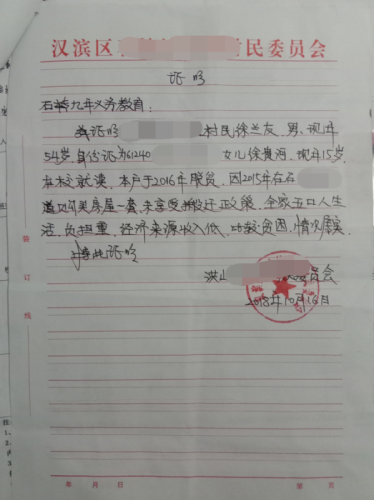 汉滨区 民委员会
证明
石转九年义务教育:
兹证明 村民徐兰友、男、现年
54岁,身份证为61240 女儿徐贵海、现年15岁,
在本校就读。本户于2016年脱贫,因2015年在石
道 购买房屋一套,未享受搬迁政策,全家五口人生
活,负担重,经济来源收入低、比较贫困,情况属实
特此证明
洪山 委员会
2018年10月16日
装
订
线
年 月 日 第 页